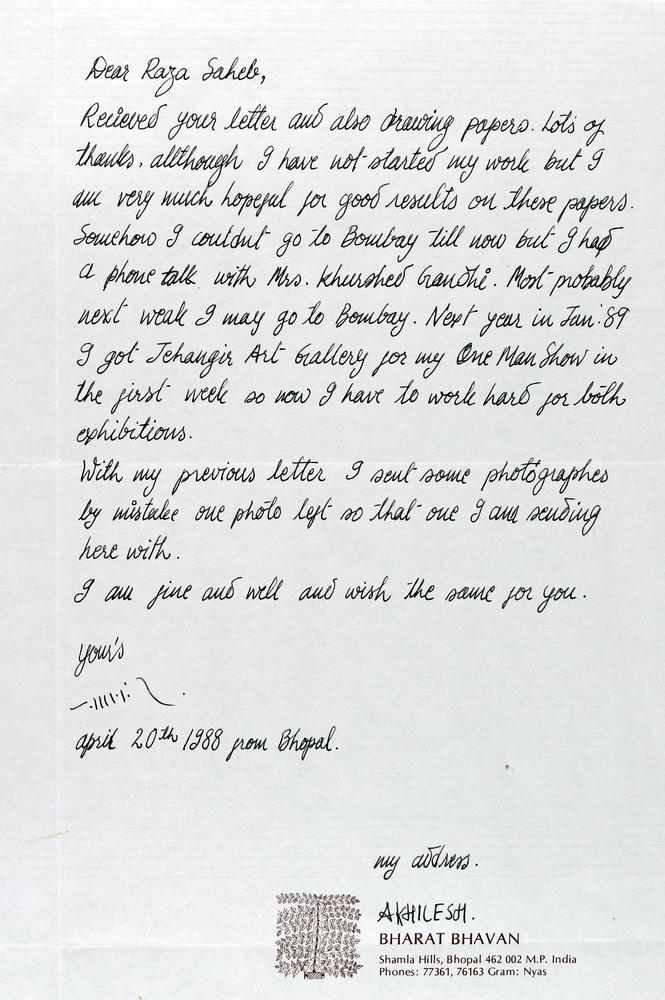 Dear Raza Saheb,
Recieved your letter and also drawing papers. Lots of
thanks. although I have not started my work but I
am very much hopeful for good results on these papers.
Somehow I couldnt go to Bombay till now but I had
a phone talk with Mrs. Khurshed Gandhi. Most probably
next weak I may go to Bombay. Next year in Jan. 89
I got Jehangir Art Gallery for my One Man Show in
the first week so now I have to work hard for both
exhibitions.
With my previous letter I sent some photographes
by mistake one photo left so that one I am sending
here with.
I am fine and well and wish the same for you.
your's
april 20th 1988 from Bhopal.
my address.
AKHILESH.
BHARAT BHAVAN
Shamla Hills, Bhopal 462 002 M.P. India
Phones: 77361, 76163 Gram: Nyas